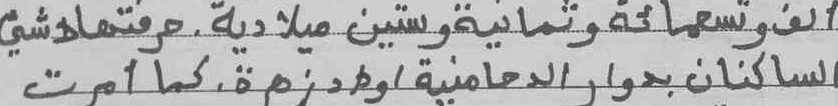 ألف وتسعمائة وثمانية وستين ميلادية. حرفتهما لا شيئ
الساكنان بدوار الدحامنية اولاد زهرة. كما أمرت